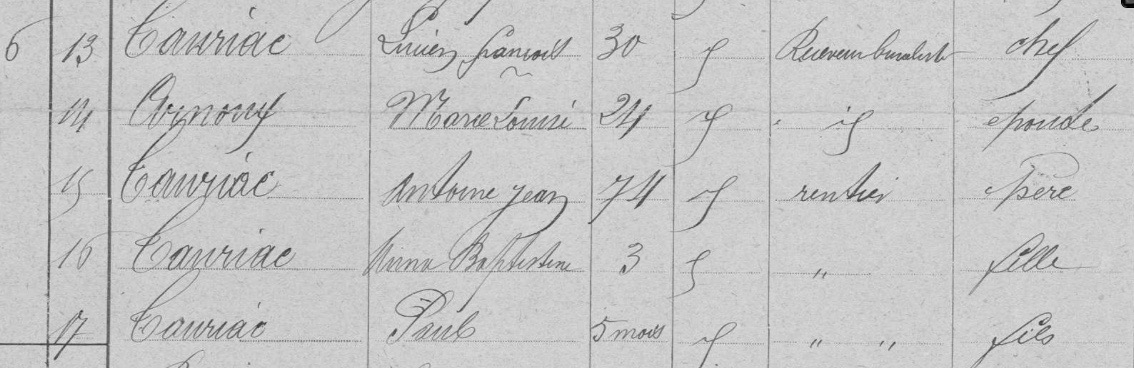 6 13 Cauriac Lucien françois 30 f Receveur buraliste chef
14 Arnoux Marie Louise 24 f id épouse
15 Cauriac Antoine jean 74 f rentier père
16 Cauriac Anna Baptistine 3 f " fille
17 Cauriac Paul 5 mois f " " fils